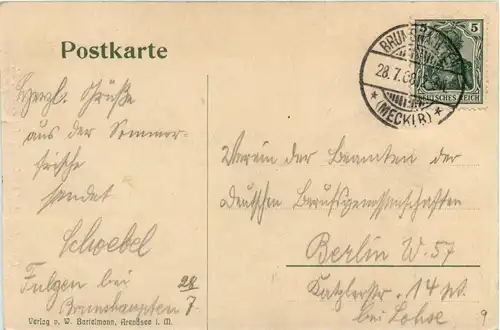 Postkarte
Herzl. Grüße
aus der Sommer-
frische
sendet
Schoebel
Fulgen bei
Brunshaupten
28
7
Verlag v. W. Bartelmann, Arendsee i. M.
BRUNSHAUPTEN
28.7.08
* (MECKLB) *
5
DEUTSCHES REICH
Verein der Beamten der
Deutschen Berufsgenossenschaften
Berlin W. 57
Katzlerstr. 14 pt.
bei Lohse
9